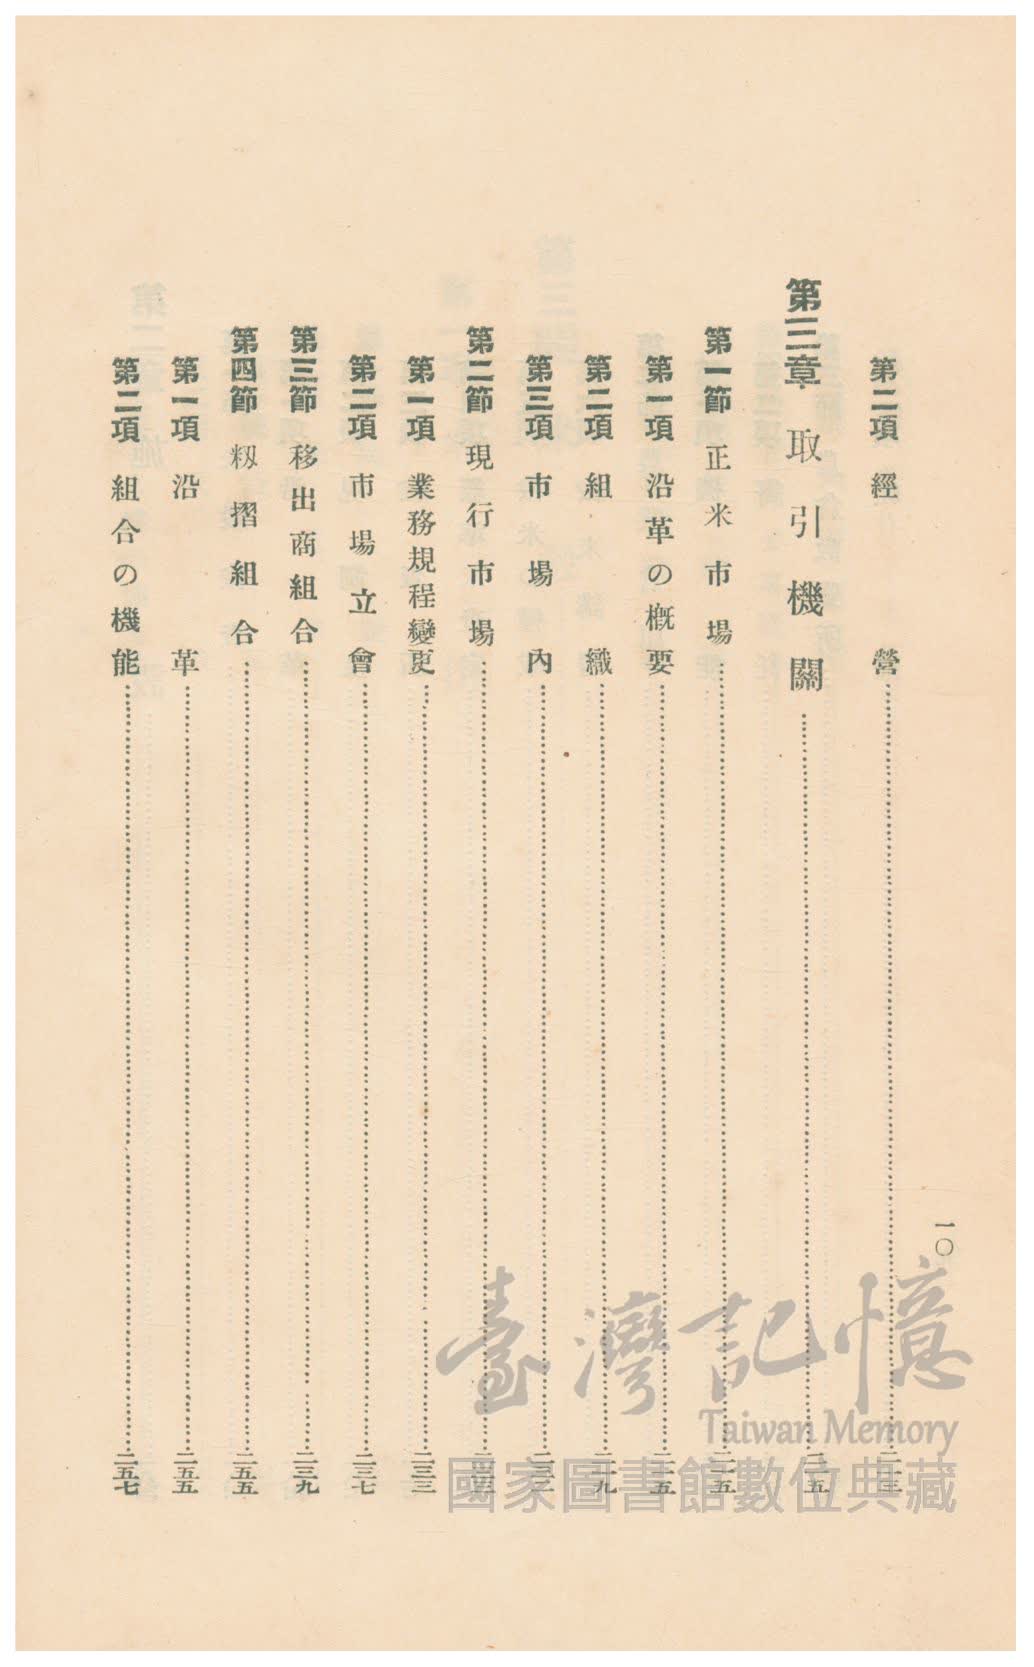 第二項 經營……二一三
第三章 取引機關……二一五
第一節 正米市場……二一五
第一項 沿革の概要……二一五
第二項 組織……二一九
第三項 市場內……
第二節 現行市場……
第一項 業務規程變更……二三三
第二項 市場立會……二三七
第三節 移出商組合……二三九
第四節 籾摺組合……二五五
第一項 沿革……二五五
第二項 組合の機能……二五七
一〇
臺灣記憶
Taiwan Memory
國家圖書館數位典藏